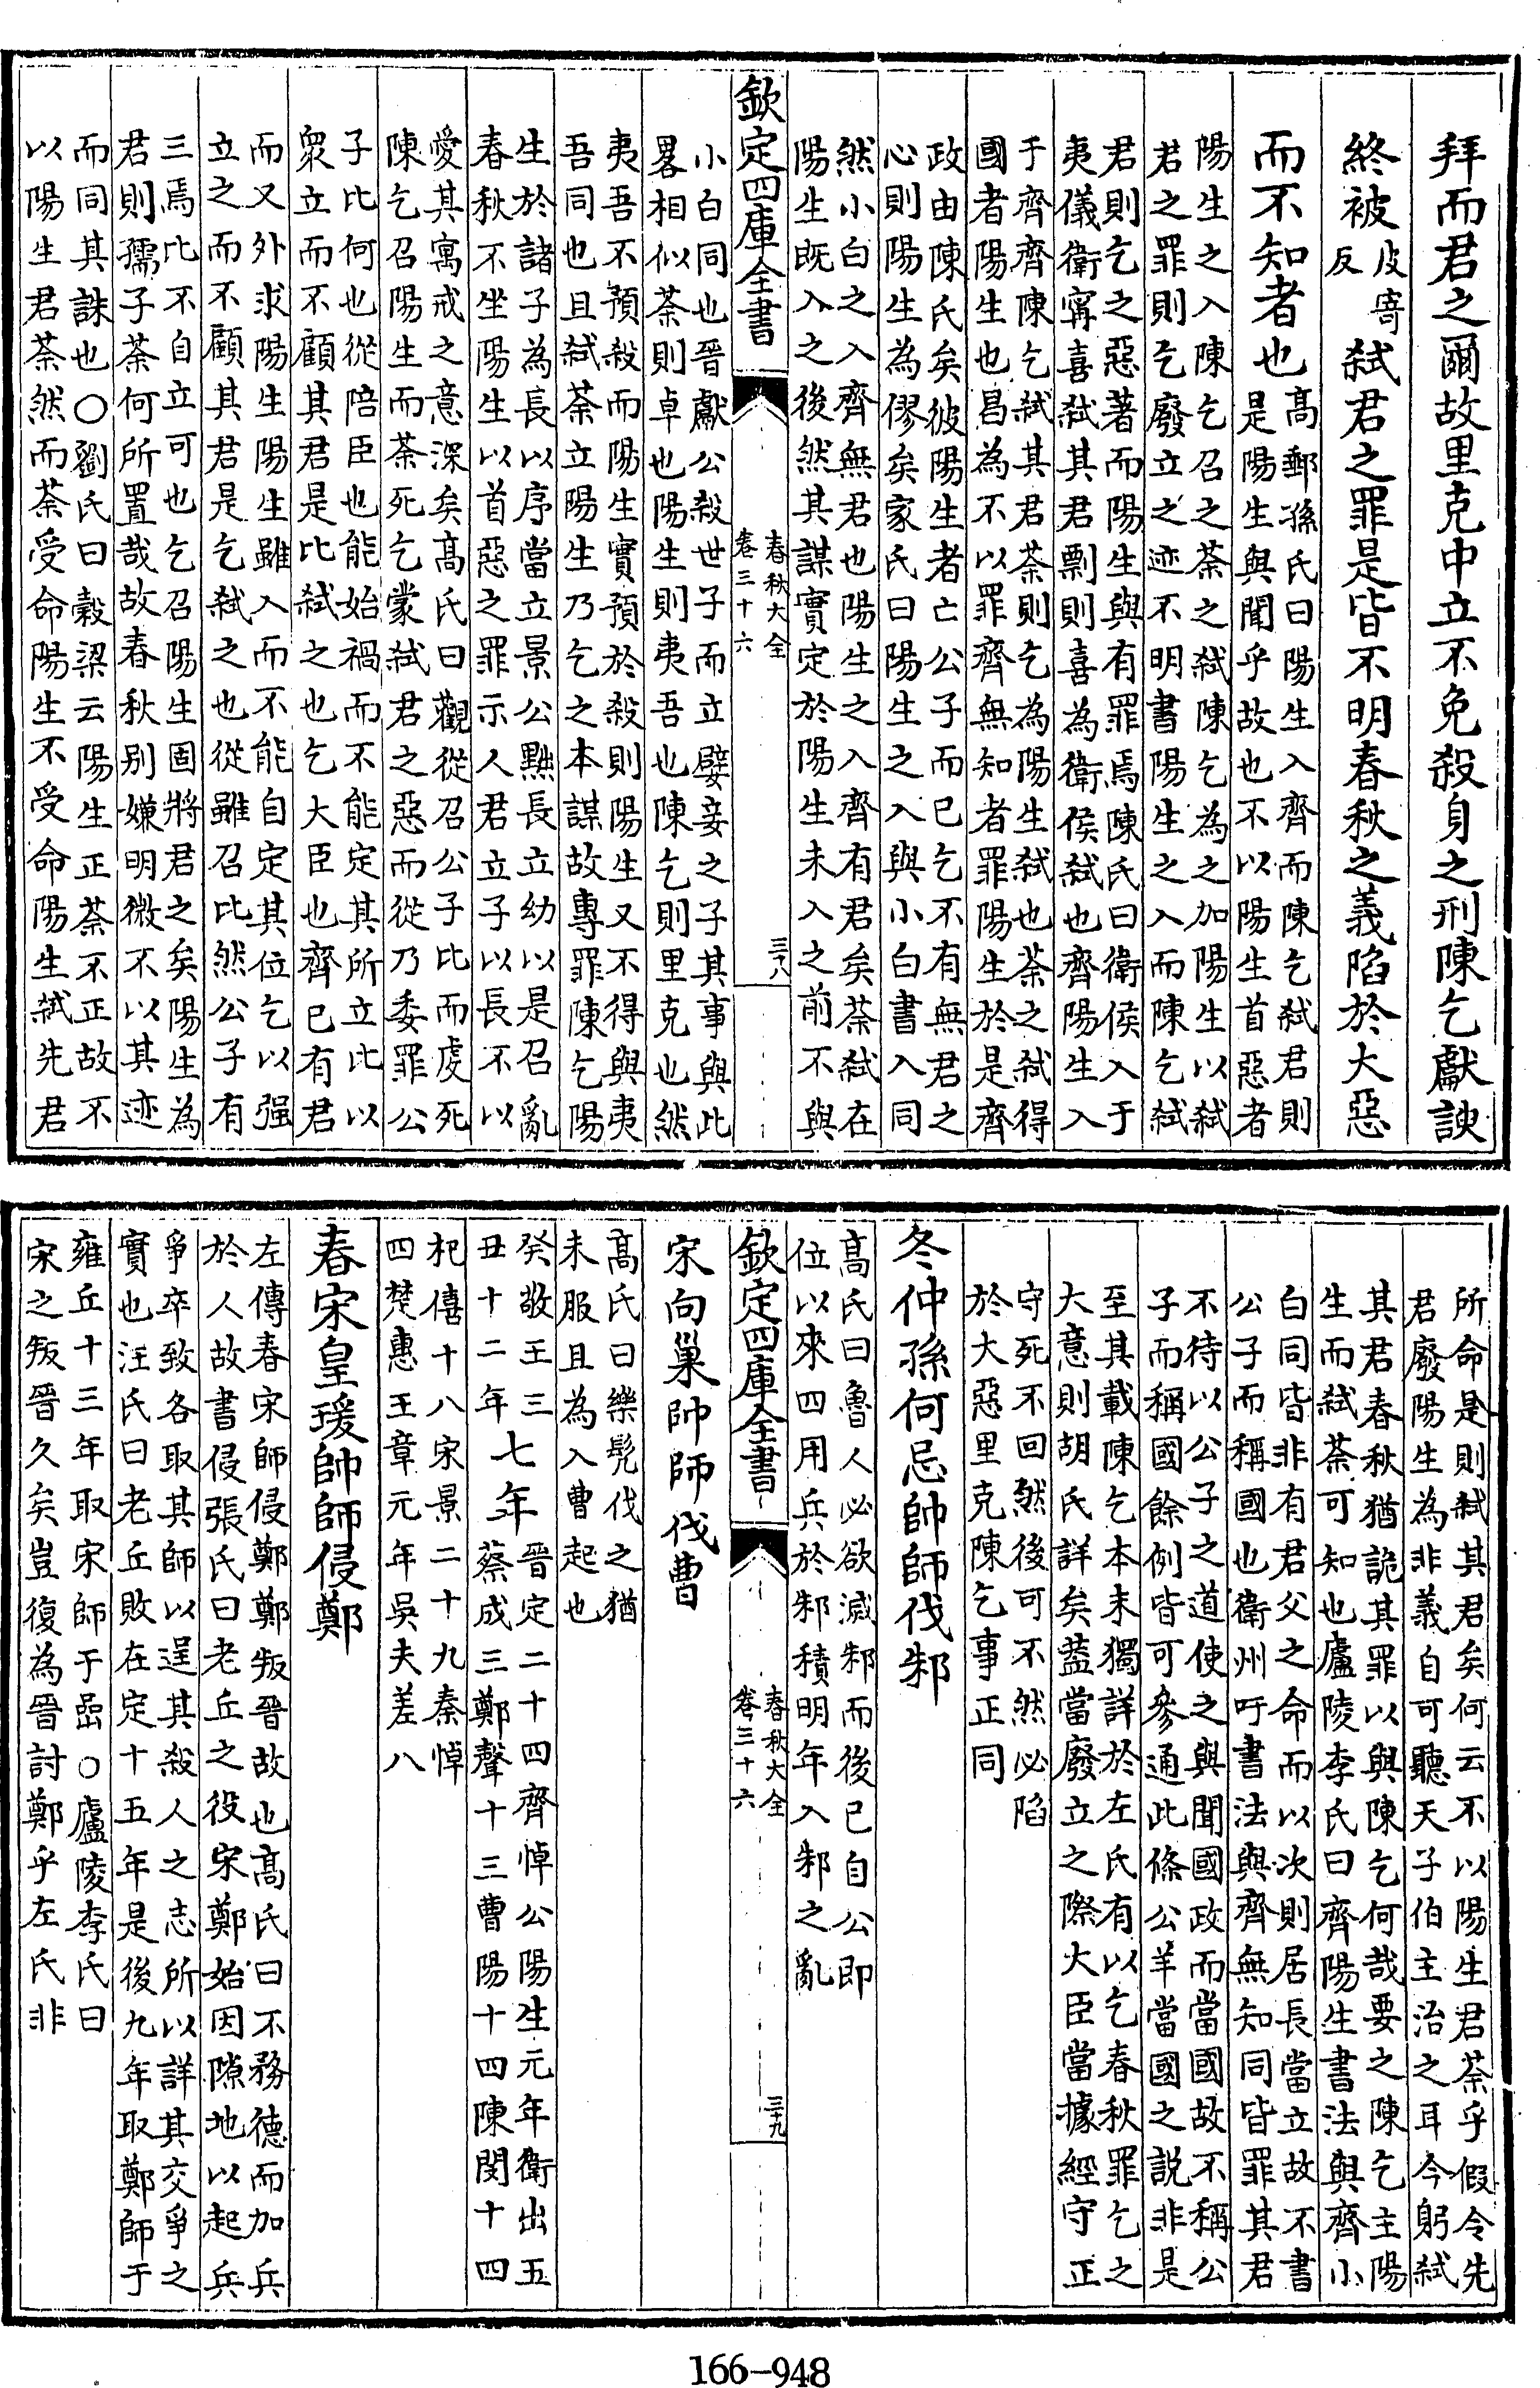 拜而君之爾故里克中立不免殺身之刑陳乞獻諛
終被皮寄反弑君之罪是皆不明春秋之義陷於大惡
而不知者也高郵孫氏曰陽生入齊而陳乞弑君則
是陽生與聞乎故也不以陽生首惡者
陽生之入陳乞召之荼之弑陳乞為之加陽生以弑
君之罪則乞廢立之迹不明書陽生之入而陳乞弑
君則乞之惡著而陽生與有罪焉陳氏曰衛侯入于
夷儀衛甯喜弑其君剽則喜為衛侯弑也齊陽生入
于齊齊陳乞弑其君荼則乞為陽生弑也荼之弑得
國者陽生也曷為不以罪齊無知者罪陽生於是齊
政由陳氏矣彼陽生者亡公子而已乞不有無君之
心則陽生為僇矣家氏曰陽生之入與小白書入同
然小白之入齊無君也陽生之入齊有君矣荼弑在
陽生既入之後然其謀實定於陽生未入之前不與
欽定四庫全書
春秋大全
卷三十六
三十八
小白同也晉獻公殺世子而立嬖妾之子其事與此
畧相似荼則卓也陽生則夷吾也陳乞則里克也然
夷吾不預殺而陽生實預於殺則陽生又不得與夷
吾同也且弑荼立陽生乃乞之本謀故專罪陳乞陽
生於諸子為長以序當立景公黜長立幼以是召亂
春秋不坐陽生以首惡之罪示人君立子以長不以
愛其寓戒之意深矣高氏曰觀從召公子比而虔死
陳乞召陽生而荼死乞蒙弑君之惡而從乃委罪公
子比何也從陪臣也能始禍而不能定其所立比以
衆立而不顧其君是比弑之也乞大臣也齊已有君
而又外求陽生陽生雖入而不能自定其位乞以强
立之而不顧其君是乞弑之也從雖召比然公子有
三焉比不自立可也乞召陽生固將君之矣陽生為
君則孺子荼何所置哉故春秋别嫌明微不以其迹
而同其誅也○劉氏曰穀梁云陽生正荼不正故不
以陽生君荼然而荼受命陽生不受命陽生弑先君
所命是則弑其君矣何云不以陽生君荼乎假令先
君廢陽生為非義自可聽天子伯主治之耳今躬弑
其君春秋猶詭其罪以與陳乞何哉要之陳乞主陽
生而弑荼可知也廬陵李氏曰齊陽生書法與齊小
白同皆非有君父之命而以次則居長當立故不書
公子而稱國也衛州吁書法與齊無知同皆罪其君
不待以公子之道使之與聞國政而當國故不稱公
子而稱國餘例皆可參通此條公羊當國之說非是
至其載陳乞本末獨詳於左氏有以乞春秋罪乞之
大意則胡氏詳矣蓋當廢立之際大臣當據經守正
守死不回然後可不然必陷
於大惡里克陳乞事正同
冬仲孫何忌帥師伐邾
高氏曰魯人必欲滅邾而後已自公即
位以來四用兵於邾積明年入邾之亂
欽定四庫全書
春秋大全
卷三十六
三十九
宋向巢帥師伐曹
高氏曰樂髠伐之猶
未服且為入曹起也
癸敬王三
丑十二年七年晉定二十四齊悼公陽生元年衛出五
蔡成三鄭聲十三曹陽十四陳閔十四
杞僖十八宋景二十九秦悼
四楚惠王章元年吳夫差八
春宋皇瑗帥師侵鄭
左傳春宋師侵鄭鄭叛晉故也高氏曰不務德而加兵
於人故書侵張氏曰老丘之役宋鄭始因隙地以起兵
爭卒致各取其師以逞其殺人之志所以詳其交爭之
實也汪氏曰老丘敗在定十五年是後九年取鄭師于
雍丘十三年取宋師于嵒○廬陵李氏曰
宋之叛晉久矣豈復為晉討鄭乎左氏非
166-948